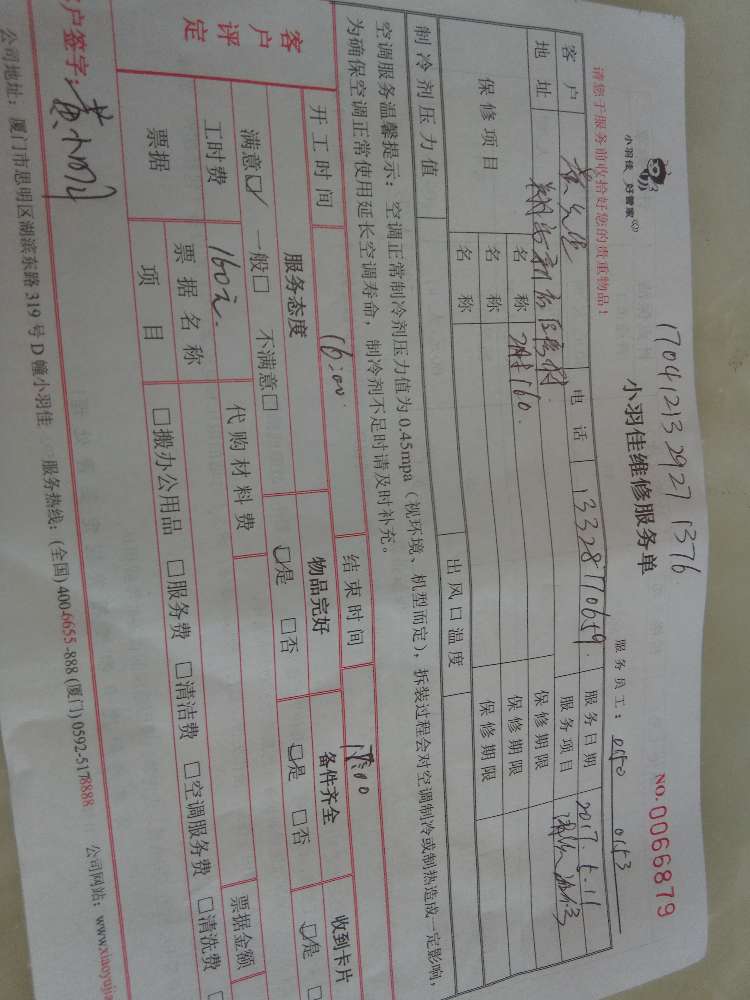 小羽佳 好管家
17041213 2927 1376
小羽佳维修服务单
NO. 0066879
请您于服务前收拾好您的贵重物品!
服务员工: 0153
客户 黄先生 电话 13328770659 服务日期 2017.5.11
地址 服务项目
保修项目 名称 160. 保修期限
名称 保修期限
名称 保修期限
制冷剂压力值 出风口温度
空调服务温馨提示: 空调正常制冷剂压力值为 0.45mpa (视环境、机型而定), 拆装过程会对空调制冷或制热造成一定影响,
为确保空调正常使用延长空调寿命, 制冷剂不足时请及时补充。
开工时间 16:00 结束时间
客户评定 服务态度 物品完好 备件齐全 收到卡片
满意☑ 一般□ 不满意□ □是 □否 □是 □否 □是
工时费 160元. 代购材料费
票据 票据名称 票据金额
项目 □搬办公用品 □服务费 □清洁费 □空调服务费 □清洗费
户签字:
公司地址: 厦门市思明区湖滨东路 319 号 D 幢小羽佳 服务热线: (全国) 400-6655-888 (厦门) 0592-5178888 公司网站: www.xiaoyujia